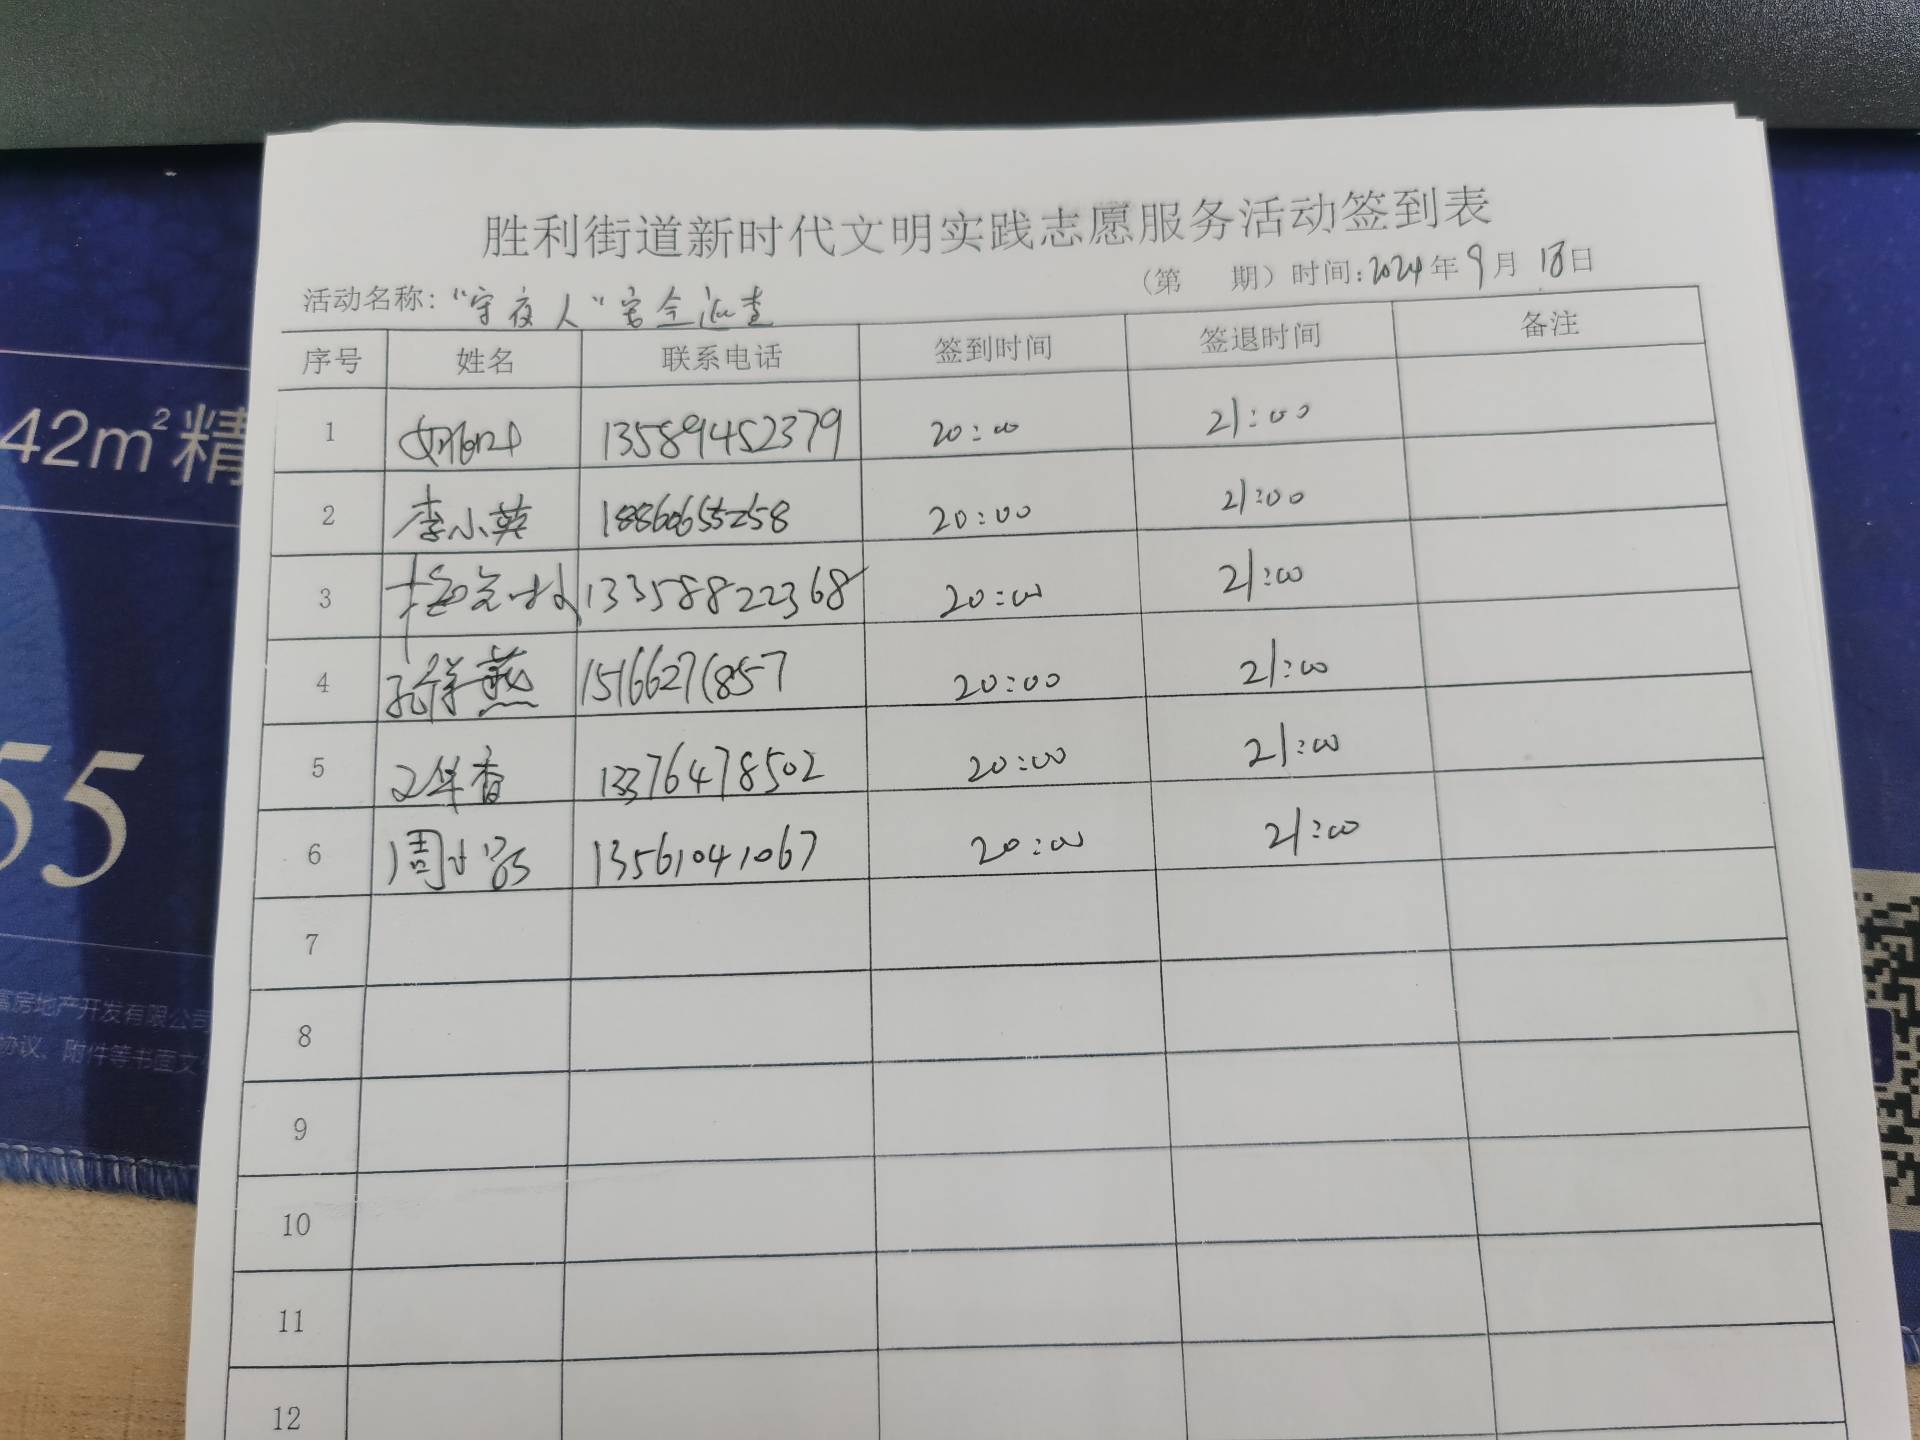 胜利街道新时代文明实践志愿服务活动签到表
(第 期) 时间:2024年9月18日
活动名称:"守夜人"安全巡查
序号 姓名 联系电话 签到时间 签退时间 备注
1 13589452379 20:00 21:00
2 李小英 18860655258 20:00 21:00
3 13358822368 20:00 21:00
4 孙祥燕 15166276857 20:00 21:00
5 华香 13376478502 20:00 21:00
6 周 13561041067 20:00 21:00
7
8
9
10
11
12
42m²精
55
房地产开发有限公司
协议、附件等书面文